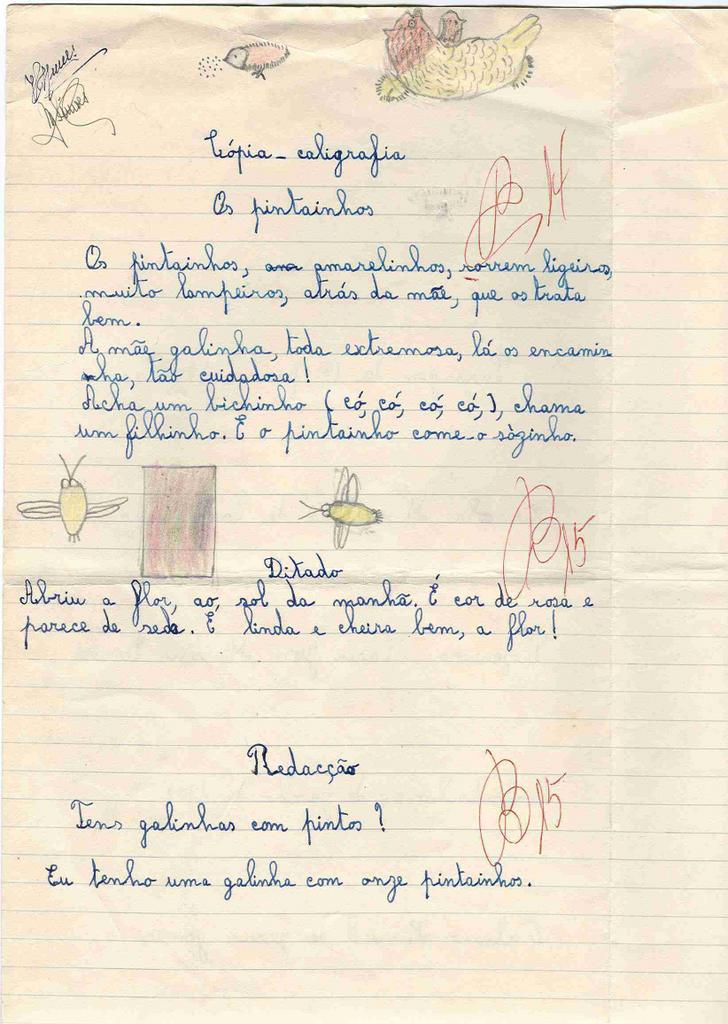 Cópia - caligrafia
Os pintainhos
B 14
Os pintainhos, ama amarelinhos, correm ligeiros,
muito lampeiros, atrás da mãe, que os trata
bem.
A mãe galinha, toda extremosa, lá os encamin
nha, tão cuidadosa!
Acha um bichinho (có, có, có, có,), chama
um filhinho. E o pintainho come-o sòzinho.
B 15
Ditado
Abriu a flor, ao, sol da manhã. É cor de rosa e
parece de seda. É linda e cheira bem, a flor!
Redacção
B 15
Tens galinhas com pintos?
Eu tenho uma galinha com onze pintainhos.